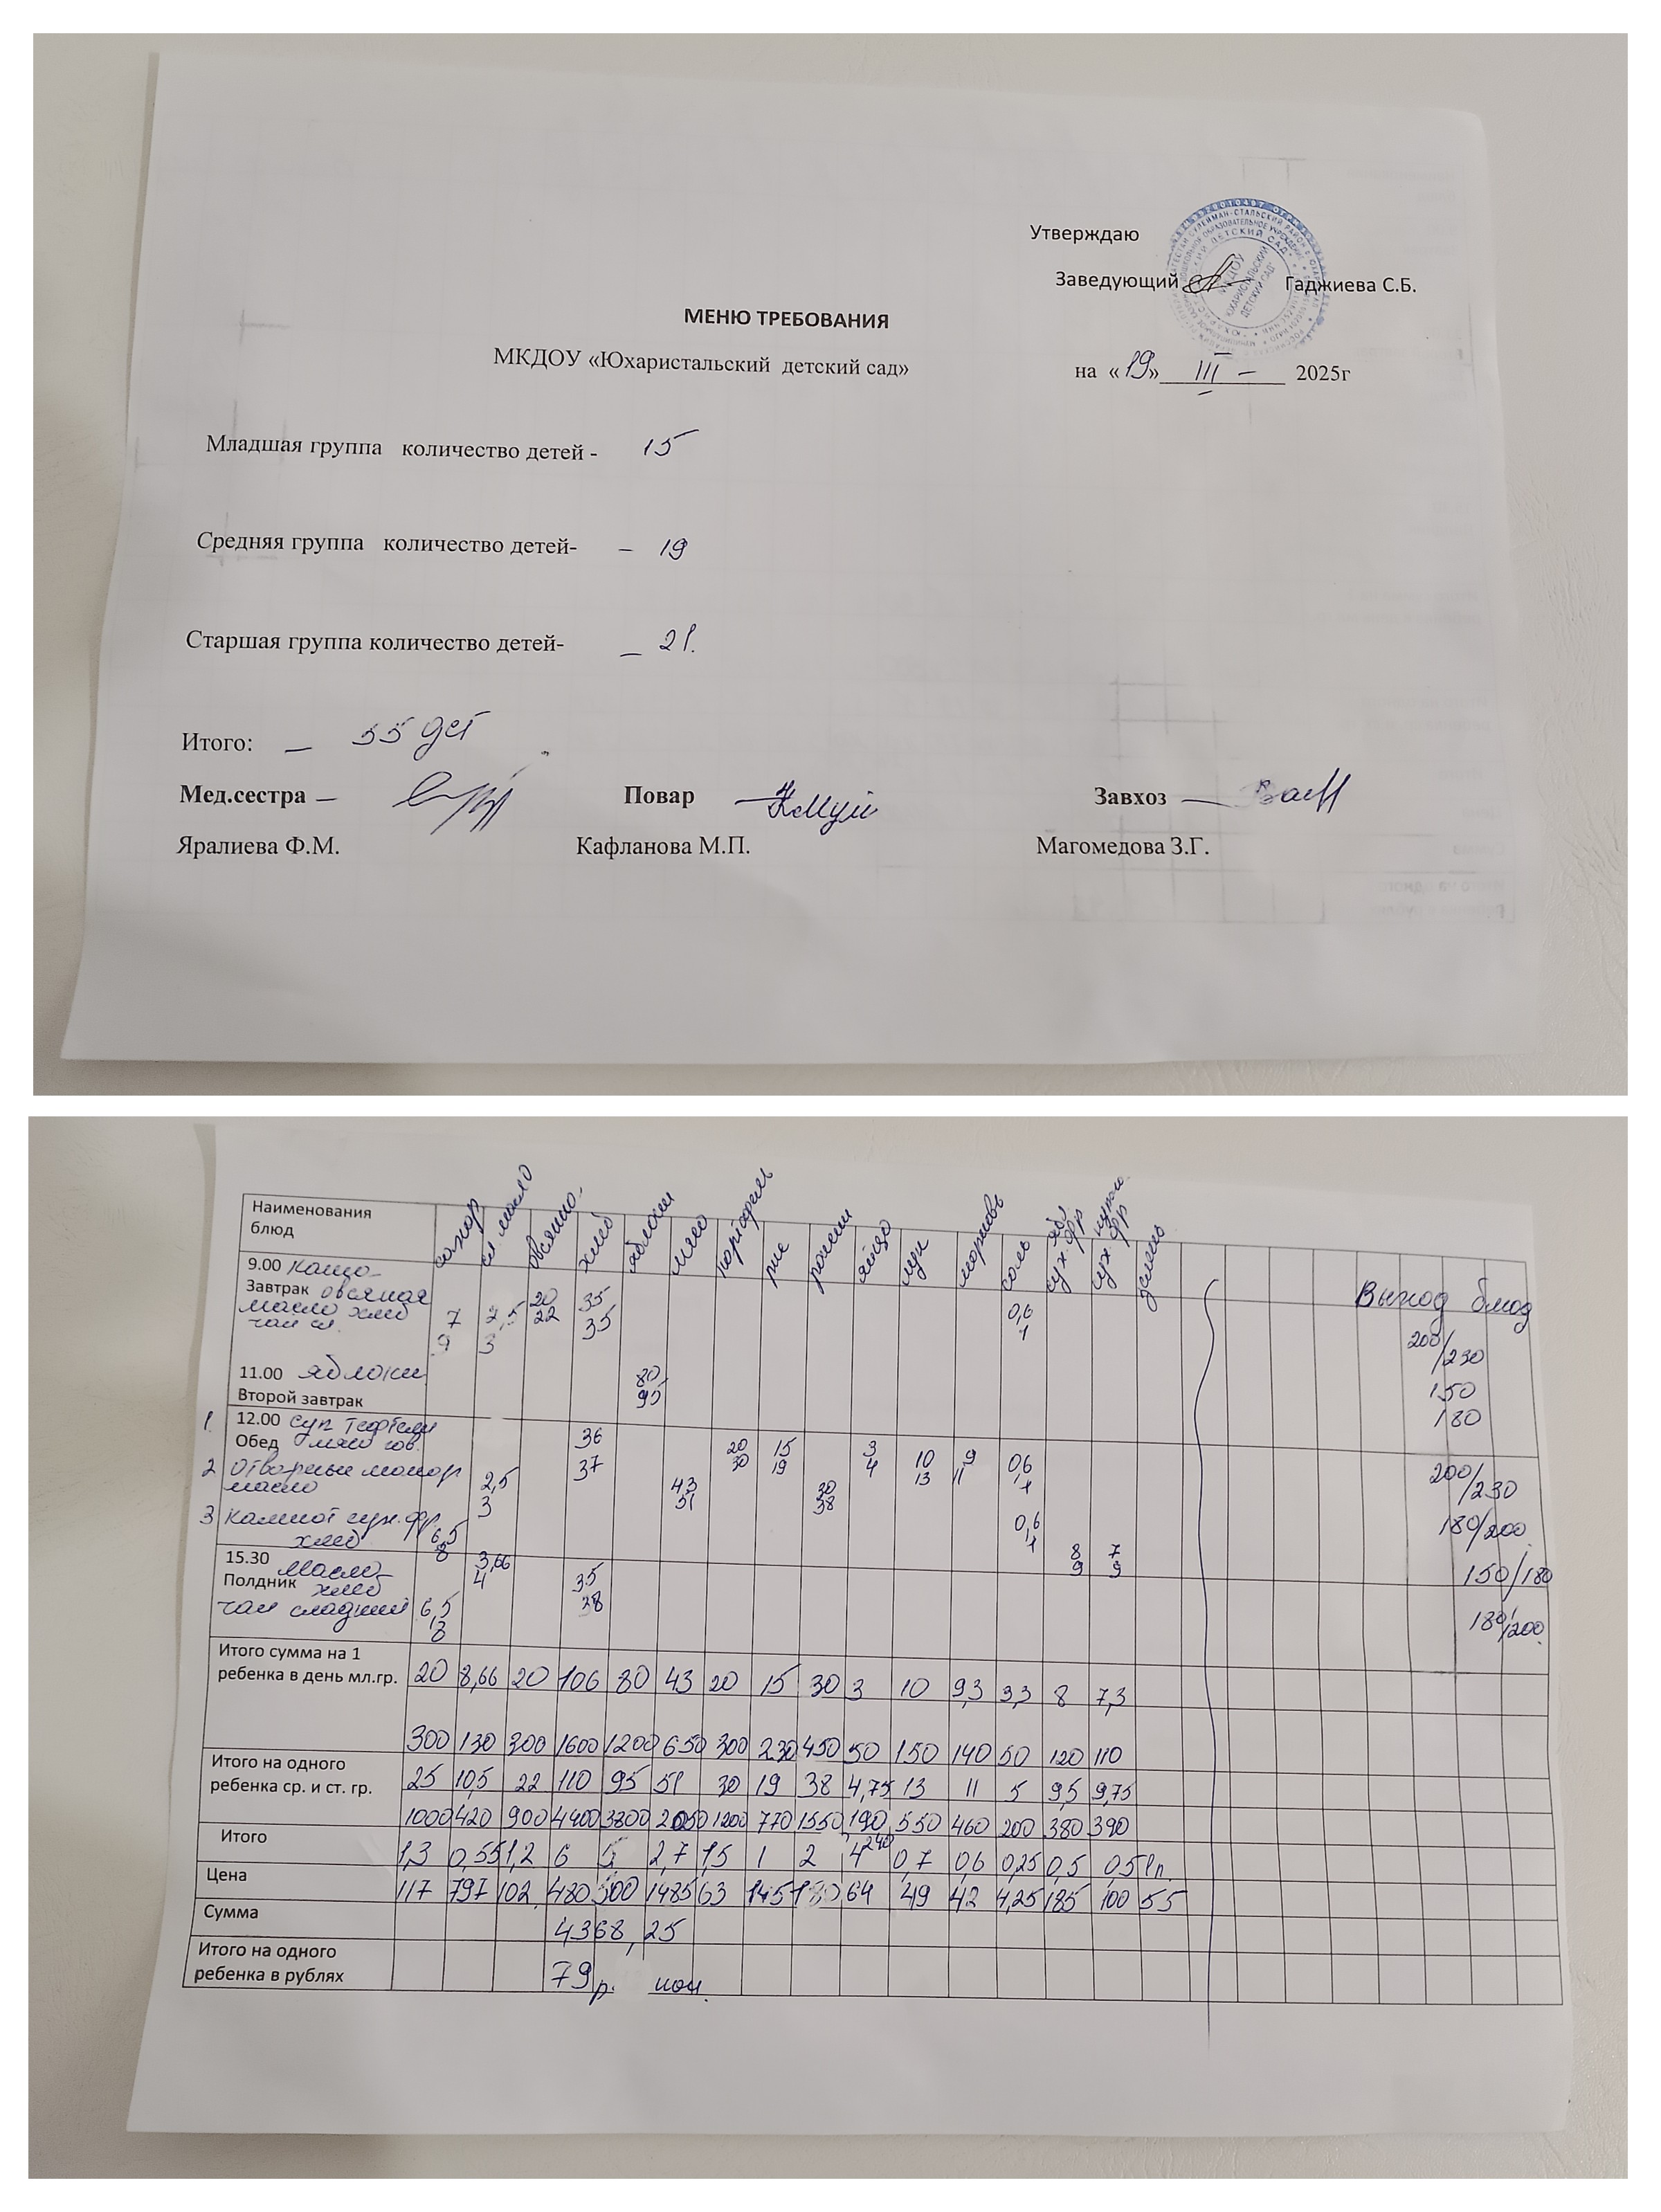 Утверждаю
Заведующий Гаджиева С.Б.
МЕНЮ ТРЕБОВАНИЯ
МКДОУ «Юхаристальский детский сад»
на «19» III – 2025г
Младшая группа количество детей - 15
Средняя группа количество детей- – 19
Старшая группа количество детей- – 21.
Итого: – 55 дет
Мед.сестра – Повар Завхоз –
Яралиева Ф.М. Кафланова М.П. Магомедова З.Г.
Наименования блюд сахар сл. масло овсянно. хлеб яблоки мясо картофель рис рожки яйцо лук морковь соль ябл сух.фр сух.фр зелень
Выход блюд
9.00 Каша
Завтрак овсяная
масло хлеб
чай сл.
7 2,5 20 35 0,6
9 3 22 35 1
200/230
11.00 яблоки 80 150
Второй завтрак 95 180
1. 12.00 суп тефтели
Обед мясо гов.
36 20 15 3 10 9 0,6
37 30 19 4 13 11 1,1
200/230
2 отварные макар
масло
2,5 43 30
3 51 38
180/200
3 Компот сух.фр
хлеб
6,5 0,6 8 7
8 1 9 9
150/180
15.30 масло
Полдник хлеб
чай сладкий
3,66 35
4 38
6,5
8
180/200
Итого сумма на 1
ребенка в день мл.гр.
20 8,66 20 106 80 43 20 15 30 3 10 9,3 3,3 8 7,3
300 130 300 1600 1200 650 300 230 450 50 150 140 50 120 110
Итого на одного
ребенка ср. и ст. гр.
25 10,5 22 110 95 51 30 19 38 4,75 13 11 5 9,5 9,75
1000 420 900 4400 3800 2050 1200 770 1550 190 550 460 200 380 390
Итого 1,3 0,55 1,2 6 5 2,7 1,5 1 2 4 240 0,7 0,6 0,25 0,5 0,5 1п.
Цена 117 797 102 480 500 1485 63 145 180 64 49 42 4,25 185 100 55
Сумма 4368,25
Итого на одного
ребенка в рублях
79 р. коп.